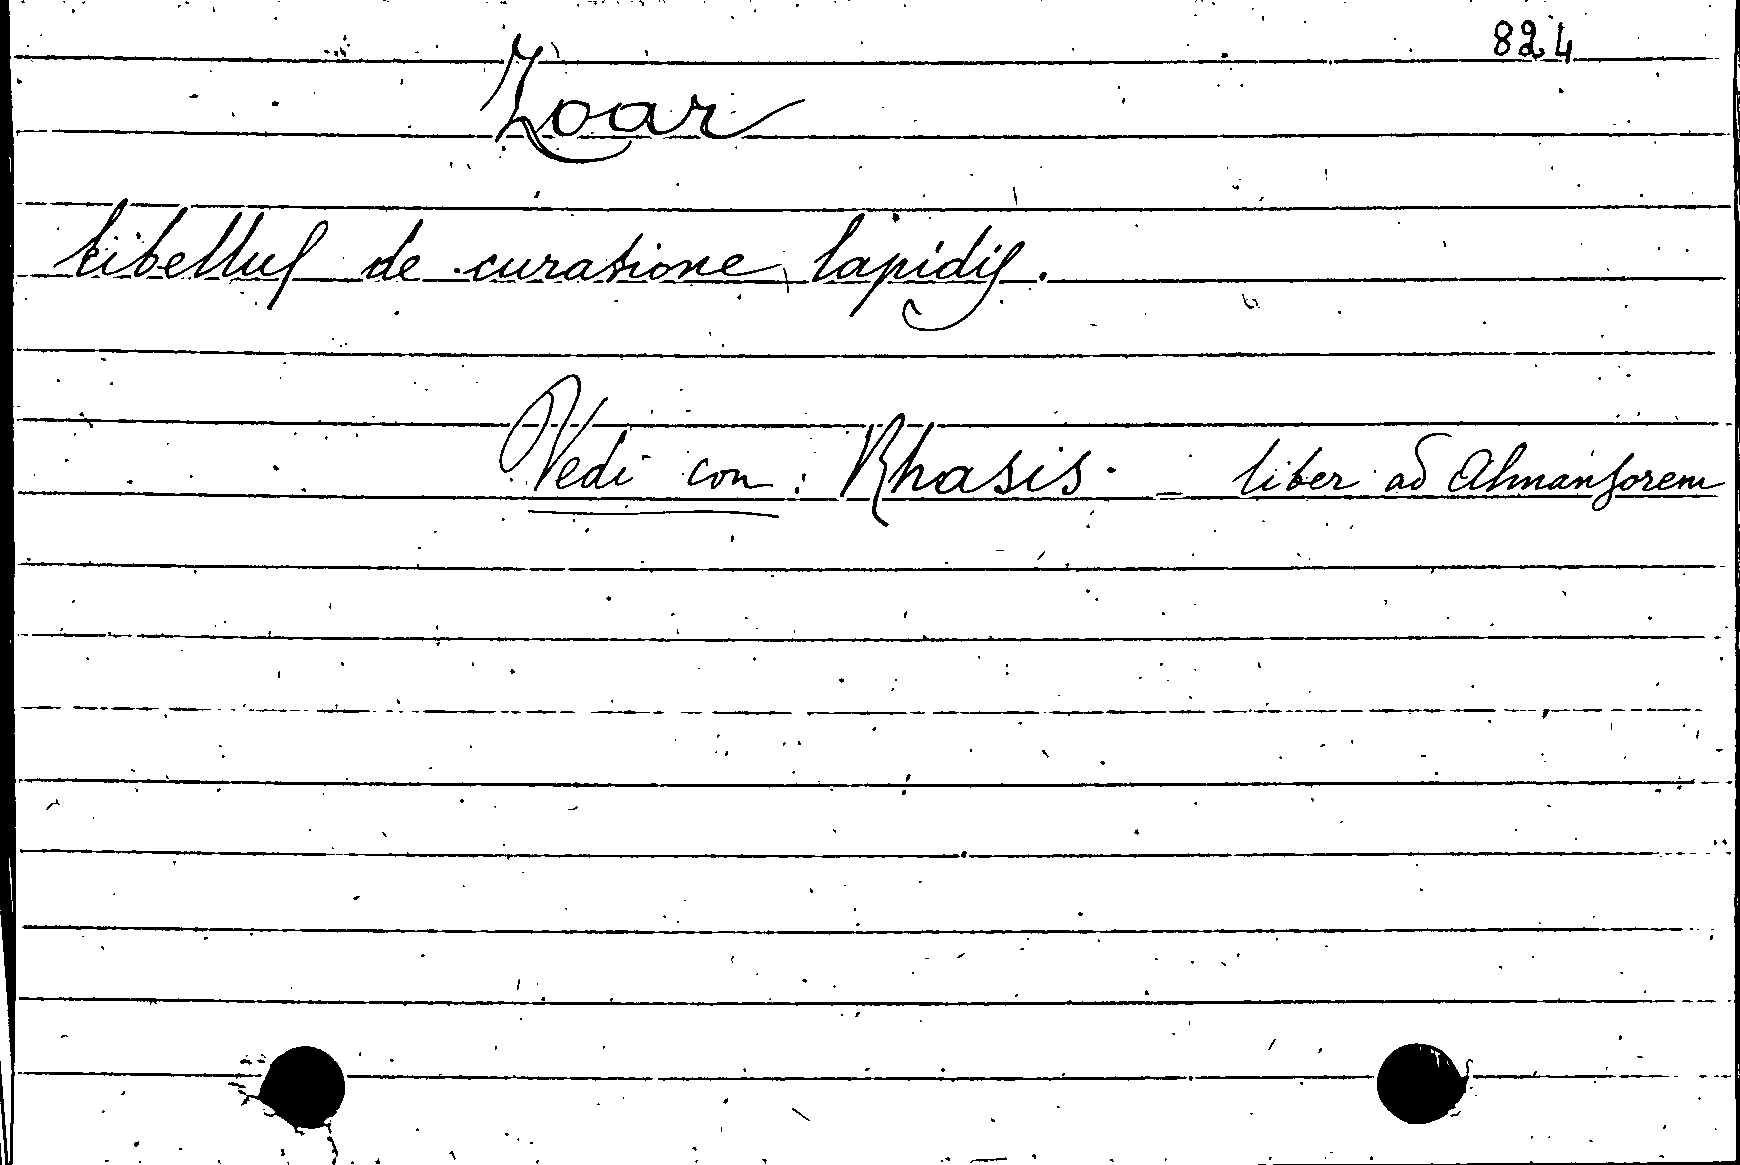 824
Zoar
libellus de curatione lapidis.
Vedi con: Rhasis. - liber ad Almansorem